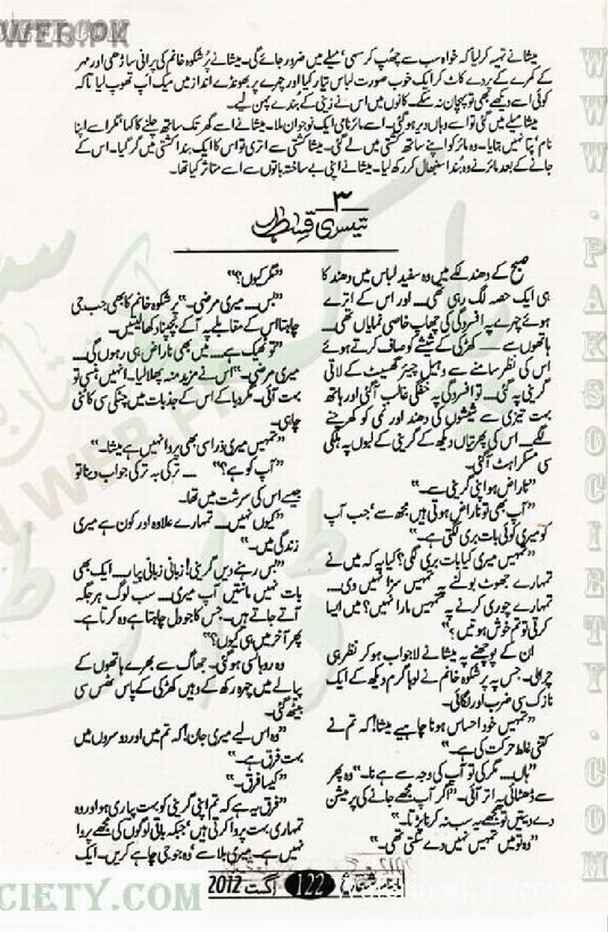 میشا نے تہیہ کرلیا کہ خواہ سب سے چھپ کر سہی، میلے میں ضرور جائے گی۔ میشا نے پُر شکوہ خانم کی پرانی ساڑھی اور مہر
کے کمرے کے پردے کاٹ کر ایک خوب صورت لباس تیار کیا اور چہرے پر بھونڈے انداز میں میک اَپ تھوپ لیا تاکہ
کوئی اسے دیکھے بھی تو پہچان نہ سکے۔ کانوں میں اس نے زینی کے بُندے پہن لیے۔
میشا میلے میں گئی تو اسے وہاں دیر ہوگئی۔ اسے مائر نامی ایک نوجوان ملا۔ میشا نے اسے گھر تک ساتھ چلنے کا کہا مگر اسے اپنا
نام، پتا نہیں بتایا۔ وہ مائر کو اپنے ساتھ کشتی میں لے گئی۔ میشا کشتی سے اتری تو اس کا ایک بندا کشتی میں گر گیا۔ اس کے
جانے کے بعد مائر نے وہ بُندا سنبھال کر رکھ لیا۔ میشا نے اپنی بے ساختہ باتوں سے اسے متاثر کیا تھا۔
۳
تیسری قسط
صبح کے دھندلکے میں وہ سفید لباس میں دھند کا
ہی ایک حصہ لگ رہی تھی۔۔۔ اور اس کے اترے
ہوئے چہرے پہ افسردگی کی چھاپ خاصی نمایاں تھی۔۔۔
ہاتھوں سے۔۔۔ کھڑکی کے شیشے کو صاف کرتے ہوئے
اس کی نظر سامنے سے وہیل چیئر گھسیٹ کے لاتی
گرینی پہ گئی۔۔۔ تو افسردگی پہ خفگی غالب آگئی اور ہاتھ
بہت تیزی سے شیشوں کی دھند اور نمی کو کھرچنے
لگے۔۔۔ اس کی پھرتیاں دیکھ کے گرینی کے لبوں پہ ہلکی
سی مسکراہٹ آگئی۔
”ناراض ہو اپنی گرینی سے۔“
”آپ بھی تو ناراض ہوئی ہیں مجھ سے، جب آپ
کو میری کوئی بات بری لگتی ہے۔“
”تمہیں میری کیا بات بری لگی؟ کیا یہ کہ میں نے
تمہارے جھوٹ بولنے پہ تمہیں سزا نہیں دی۔۔۔
تمہارے چوری کرنے پہ تمہیں مارا نہیں؟ میں ایسا
کرتی تو تم خوش ہوتیں؟“
ان کے پوچھنے پہ میشا نے لاجواب ہوکر نظر ہی
چرالی۔ جس پہ پر شکوہ خانم نے لوہا گرم دیکھ کے ایک
نازک سی ضرب اور لگائی۔
”تمہیں خود احساس ہونا چاہیے میشا! کہ تم نے
کتنی غلط حرکت کی ہے۔“
”ہاں۔۔۔ مگر کی تو آپ کی وجہ سے ہے نا۔“ وہ پھر
سے ڈھٹائی پہ اتر آئی۔ ”اگر آپ مجھے جانے کی پرمیشن
دے دیتیں تو مجھے یہ سب نہ کرنا پڑتا۔“
”وہ تو میں تمہیں نہیں دے سکتی تھی۔“
”مگر کیوں؟“
”بس۔۔۔ میری مرضی۔“ پر شکوہ خانم کا بھی جب جی
چاہتا اس کے مقابلے پہ آکے بچپنا دکھا لیتیں۔
”تو ٹھیک ہے۔۔۔ میں بھی ناراض ہی رہوں گی۔۔۔
میری مرضی۔“ اس نے مزید منہ پھلا لیا۔ انہیں ہنسی تو
بہت آئی۔ مگر دبا کے اس کے جذبات میں چٹکی سی کاٹنی
چاہی۔
”تمہیں میری ذرا سی بھی پروا نہیں ہے میشا۔“
”آپ کو ہے؟“ ۔۔۔ ترکی بہ ترکی جواب دینا تو
جیسے اس کی سرشت میں تھا۔
”کیوں نہیں۔۔۔ تمہارے علاوہ اور کون ہے میری
زندگی میں۔“
”بس رہنے دیں گرینی! زبانی زبانی پیار۔۔۔ ایک بھی
بات نہیں مانتیں آپ میری۔۔۔ سب لوگ ہر جگہ
آتے جاتے ہیں۔ جس کا جو دل چاہتا ہے وہ کرتا ہے۔
پھر آخر میں ہی کیوں؟“
وہ روہانسی ہوگئی۔ جھاگ سے بھرے ہاتھوں کے
پیالے میں چہرہ رکھ کے وہیں کھڑکی کے پاس ٹھس سی
بیٹھ گئی۔
”وہ اس لیے میری جان! کہ تم میں اور دوسروں میں
بہت فرق ہے۔“
”کیسا فرق۔“
”فرق یہ ہے کہ تم اپنی گرینی کو بہت پیاری ہو اور وہ
تمہاری بہت پروا کرتی ہیں، جبکہ باقی لوگوں کی مجھے پروا
نہیں ہے۔ میری بلا سے، وہ جو جی چاہے کریں۔ ایک
ماہنامہ شعاع 122 اگست 2012
WWW.PAKSOCIETY.COM
CIETY.COM